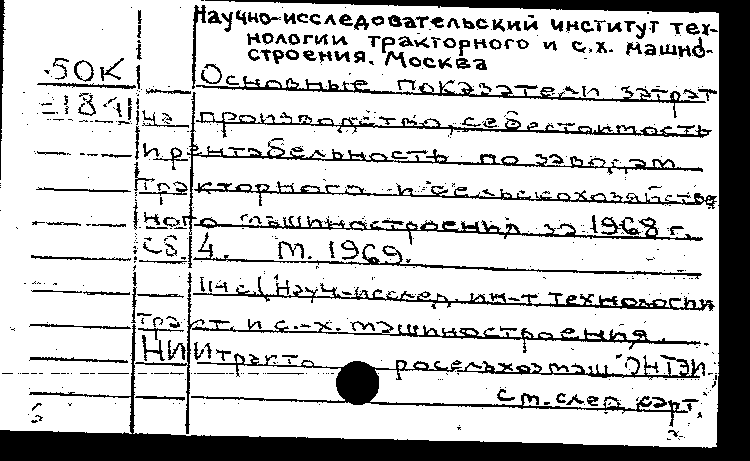 Научно-исследовательский институт тех-
нологии тракторного и с.х. машно-
строения. Москва
.50К
Основные показатели затрат
=1841
на производство, себестоимость
и рентабельность по заводам
тракторного и сельскохозяйстве
ного машиностроения за 1968 г.
сб. 4. М. 1969.
114 с. (Науч-исслед. ин-т технологии
тракт. и с.-х. машиностроения
НИИтракто росельхозмаш" ОНТЭИ
См. след. карт.